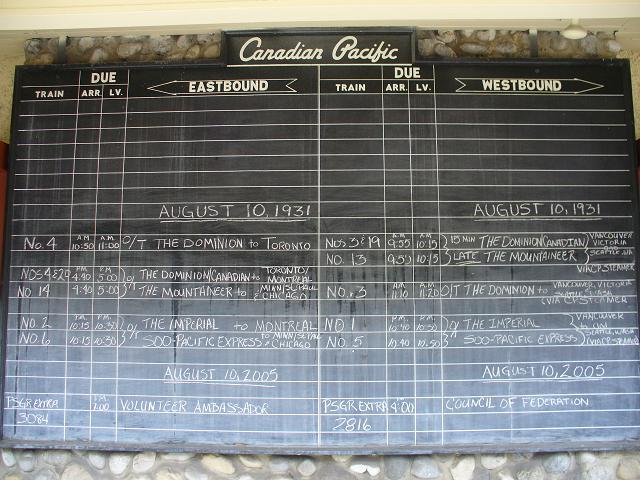 Canadian Pacific
DUE DUE
TRAIN ARR. LV. EASTBOUND TRAIN ARR. LV. WESTBOUND
AUGUST 10, 1931 AUGUST 10, 1931
No. 4 A.M. 10:50 A.M. 11:00 O/T THE DOMINION to TORONTO
NOS 4 & 20 P.M. 4:40 P.M. 5:00 THE DOMINION/CANADIAN to TORONTO/MONTREAL
NO 14 4:40 5:00 THE MOUNTAINEER to MINN/ST.PAUL & CHICAGO
NO. 2 P.M. 10:15 P.M. 10:30 THE IMPERIAL to MONTREAL
NO. 6 10:15 10:30 SOO-PACIFIC EXPRESS to MINN/STP & CHICAGO
NOS 3 & 19 A.M. 9:55 A.M. 10:15 15 MIN THE DOMINION/CANADIAN VANCOUVER VICTORIA
NO. 13 10:15 LATE THE MOUNTAINEER SEATTLE, WA
VIA CP STEAMER
NO. 3 A.M. 11:10 A.M. 11:20 O/T THE DOMINION to VANCOUVER, VICTORIA
(VIA CP STEAMER
NO 1 THE IMPERIAL VANCOUVER
NO. 5 10:40 10:50 SOO-PACIFIC EXPRESS (VIA CP STEAMER)
AUGUST 10, 2005 AUGUST 10, 2005
PSGR EXTRA P.M. VOLUNTEER AMBASSADOR PSGR EXTRA 4:00 COUNCIL OF FEDERATION
3084 2816